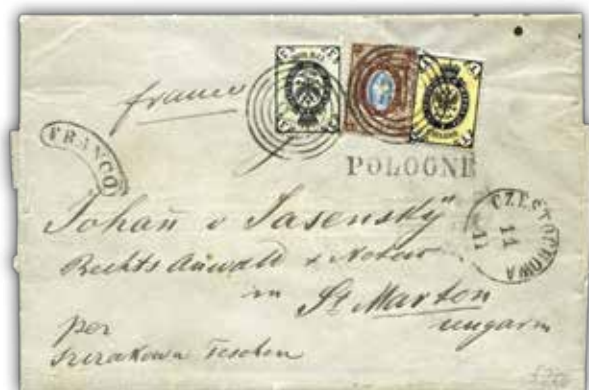 franco
FRANCO
POLOGNE
CZĘSTOCHOWA
11
11
Johañ v Jasensky
Rechts Anwald & Notar
in St Marton
ungarn
per
Teschen